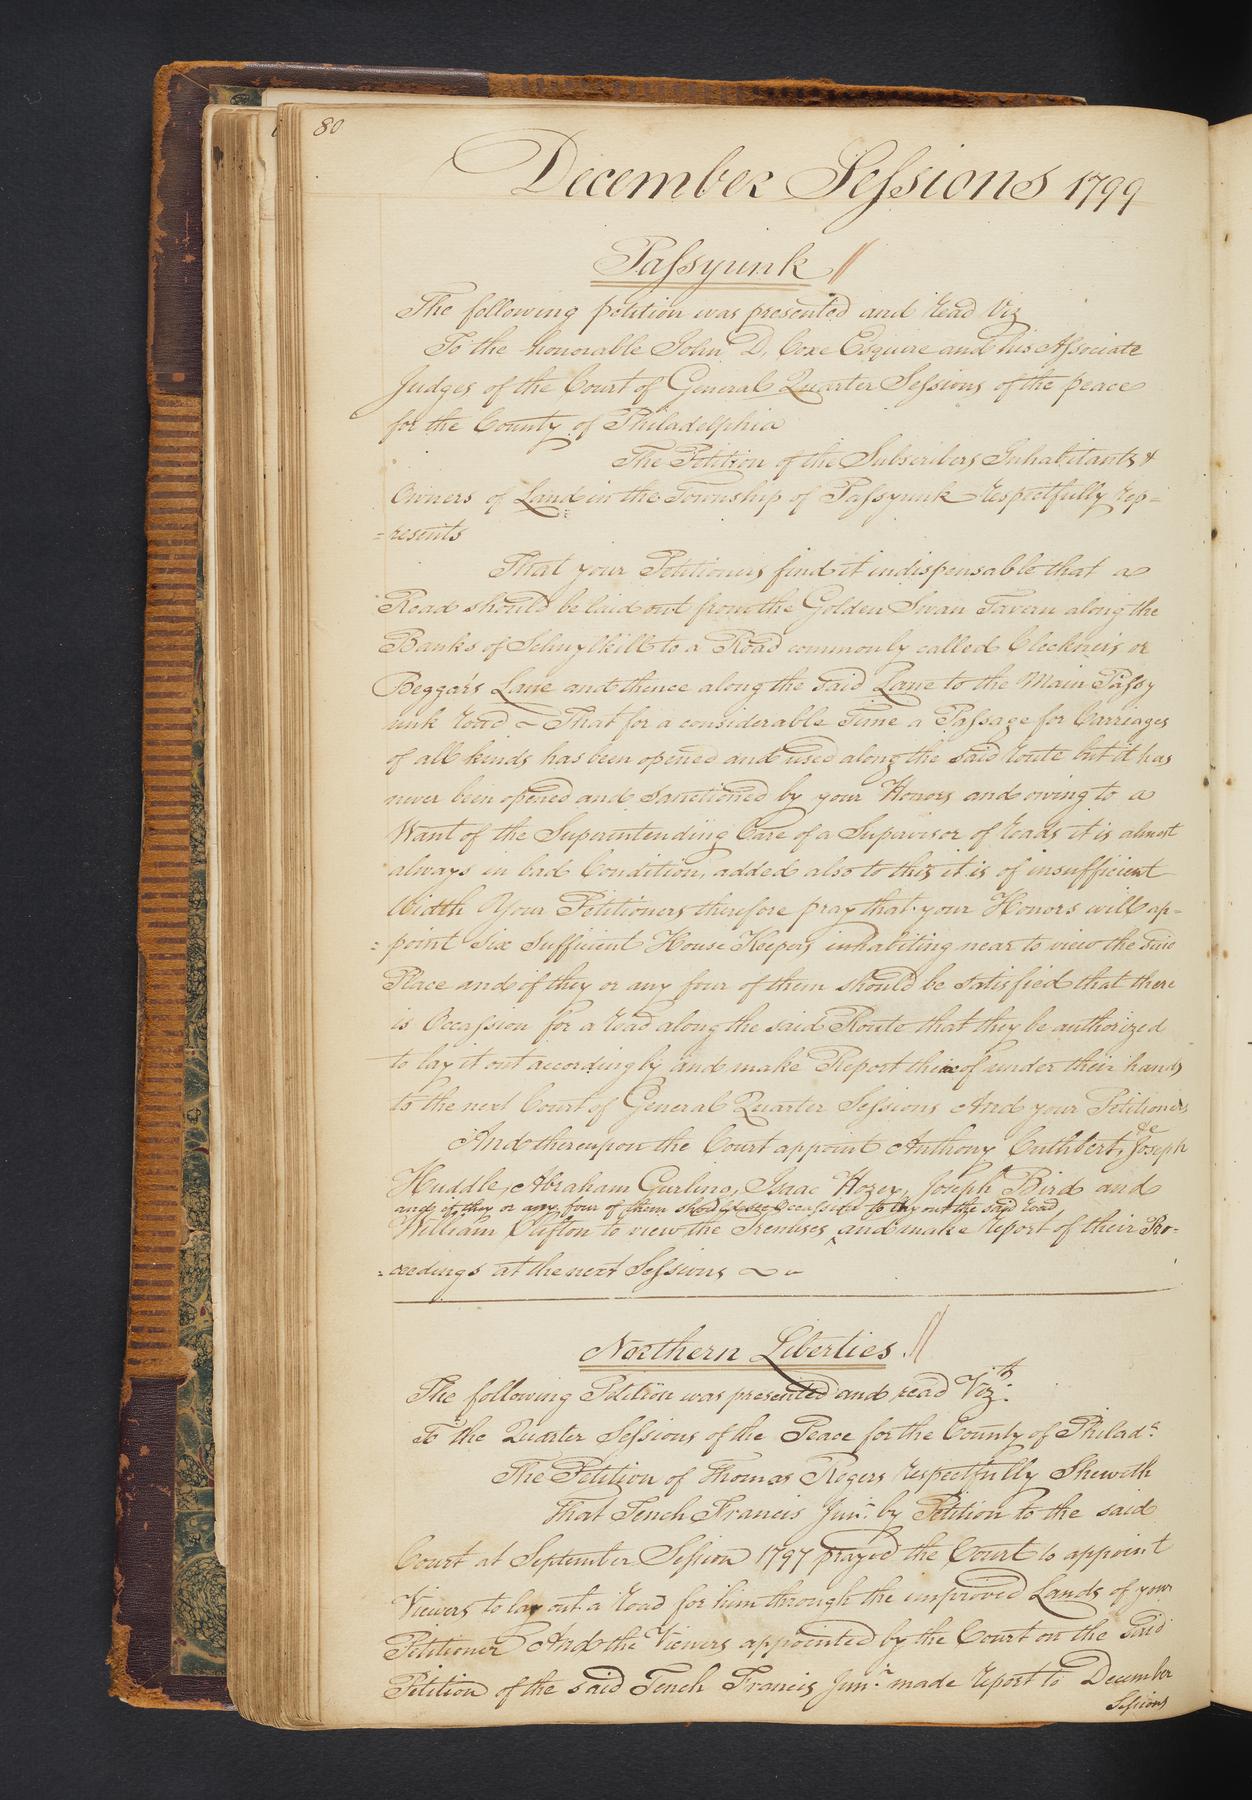 80
December Sessions 1799
Passyunk //
The following petition was presented and Read Viz
To the honorable John D. Coxe Esquire and his Associate
Judges of the Court of General Quarter Sessions of the peace
for the County of Philadelphia
The Petition of the Subscribers Inhabitants &
Owners of Land in the Township of Passyunk Respectfully Rep=
=resents
That your Petitioners find it indispensable that a
Road should be laid out from the Golden Swan Tavern along the
Banks of Schuylkill to a Road commonly called Cleckner's or
Beggar's Lane and thence along the said Lane to the Main Passy
unk Road ~ That for a considerable Time a Passage for Carriages
of all kinds has been opened and used along the said Route but it has
never been opened and Sanctioned by your Honors and owing to a
Want of the Superintending Care of a Supervisor of Roads it is almost
always in bad Condition, added also to this it is of insufficient
Width Your Petitioners therefore pray that your Honors will ap=
=point Six Sufficient House Keepers inhabiting near to view the said
Place and if they or any four of them should be satisfied that there
is Occassion for a Road along the said Route that they be authorized
to lay it out accordingly and make Report thereof under their hands
to the next Court of General Quarter Sessions And your Petitioners
&c
And thereupon the Court appoint Anthony Cuthbert, Joseph
Huddle, Abraham Gurling, Isaac Hozey, Joseph Bird and
and if they or any four of them shod see Occassion to lay out the said Road
William Clifton to view the Premises ‸ and make Report of their Pro-
=ceedings at the next Sessions ~ ~
Northern Liberties. //
The following Petition was presented and read Vizth:
To the Quarter Sessions of the Peace for the County of Philada
The Petition of Thomas Rogers Respectfully Sheweth
That Tench Francis Junr by Petition to the said
Court at September Session 1797 prayed the Court to appoint
Viewers to lay out a Road for him through the improved Lands of your
Petitioner And the Viewers appointed by the Court on the Said
Petition of the said Tench Francis Junr made Report to December
Sessions